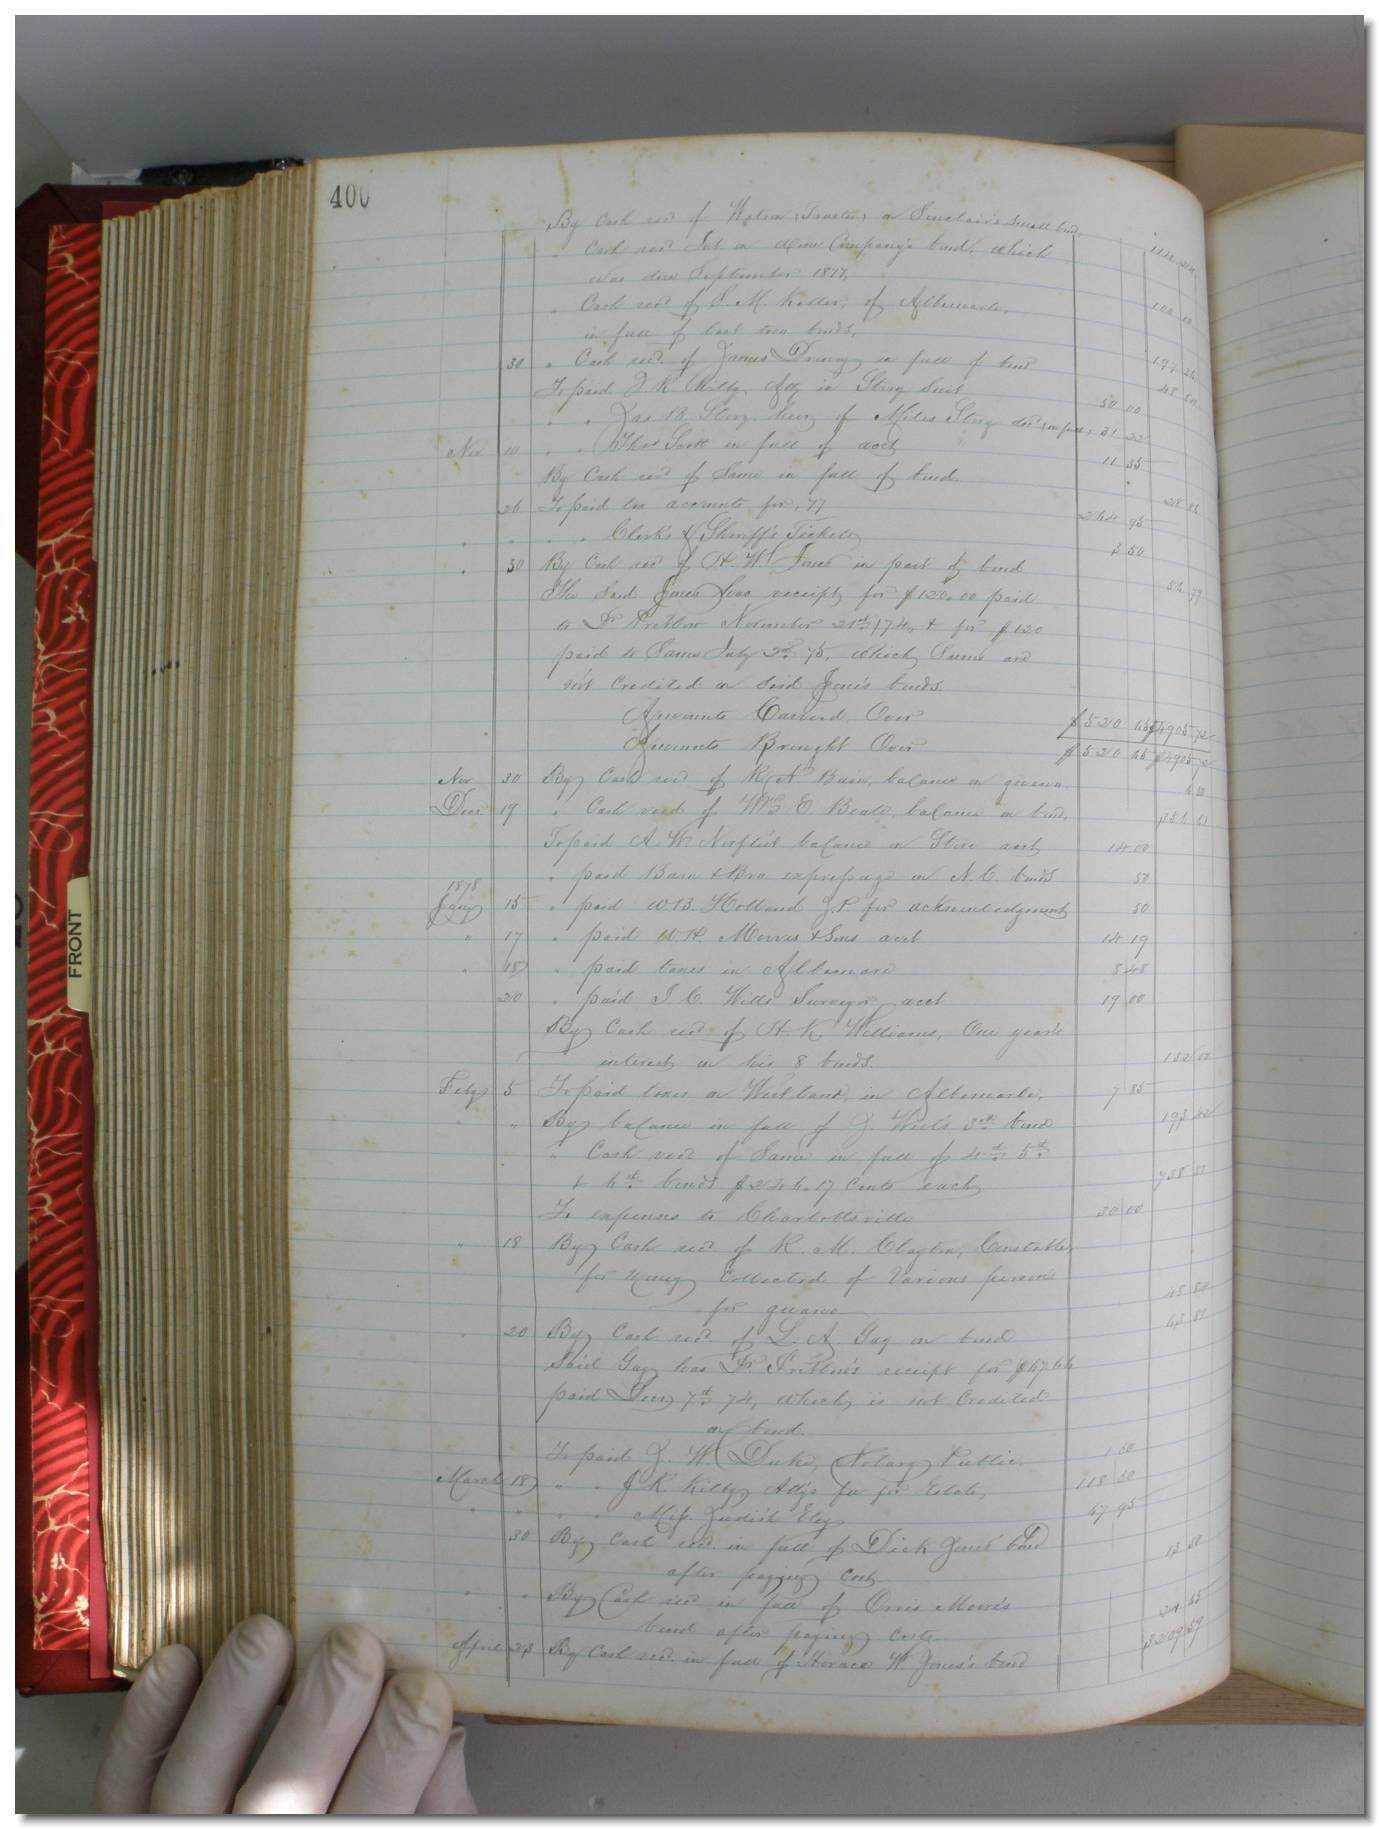 400
By Cash rec'd of Trustee, on Sinclair's Small bond,
" Cash rec'd Int on Company's bond, which
was due September 1877,
" Cash rec'd of S M Keller, of Albemarle, 100 00
in full of last two bonds,
30 " Cash rec'd of James Drewry in full of bond
To paid J. R. Kilby Atty in Story Suit 50 00
" " Jas B. Story heir of Miles Story dec'd, in full, 31 22
Nov 10 " " Thos Scott in full of acct 11 35
By Cash rec'd of Same in full of bond
26 To paid tax accounts for, 77 264 95
" " " " Clerks & Sheriff's Tickets 3 50
" 30 By Cash rec'd of H. W. Jones in part of bond
The Said Jones has receipts for $120.00 paid
to Dr Pretlow November 21st, 74, & for $120
paid to Same July 2nd 75, which Sums are
not Credited on Said Jones's bonds.
Amounts Carried Over $520 65 $4905 72
Amounts Brought Over $520 65 $4905 72
Nov 30 By Cash rec'd of R, A Bain, balance on guano
Dece 19 " Cash rec'd of Wm E Beale, balance on bond,
To paid A. W. Norfleet balance on Store acct 14 00
" paid Bain & Bro expressage on N.C. bonds 50
1878
Jany 15 " paid W.B. Holland J.P. for acknowledgment 50
" 17 " paid W.H. Morris & Sons acct 14 19
" 18 " paid taxes in Albemarle 8 48
20 " paid J. C. Wills Surveyor, acct 19 00
By Cash rec'd of H. K. Williams, One year's
interest on his 8 bonds. 132 00
Feby 5 To paid taxes on Westland, in Albemarle, 7 85
" " By balance in full of J. West's 3rd bond 193 42
" Cash rec'd of Same in full of 4th 5th
& 6th bonds $246.17 Cents each 738 51
To expenses to Charlottesville 30 00
" 18 By Cash rec'd of R. M. Clayton, Constable,
for money Collected of Various persons
for guano 48 84
" 20 By Cash rec'd of L. A. Gay on bond
Said Gay has Dr. Pretlow's receipt for $67.66
paid 7th 74, which is not Credited
on bond.
To paid J. W. Duke, Notary Public, 1 50
March 18 " " J R Kilby Att'y's fee for Estate, 118 50
" " " " Miss Judith Eley 67 95
30 By Cash rec'd in full of Dick Jones' bond
after paying Cost 13 50
" " By Cash rec'd in full of Orris Morris
bond after paying Costs
April 23 By Cash rec'd in full of Horace W. Jones's bond 3209 59
FRONT